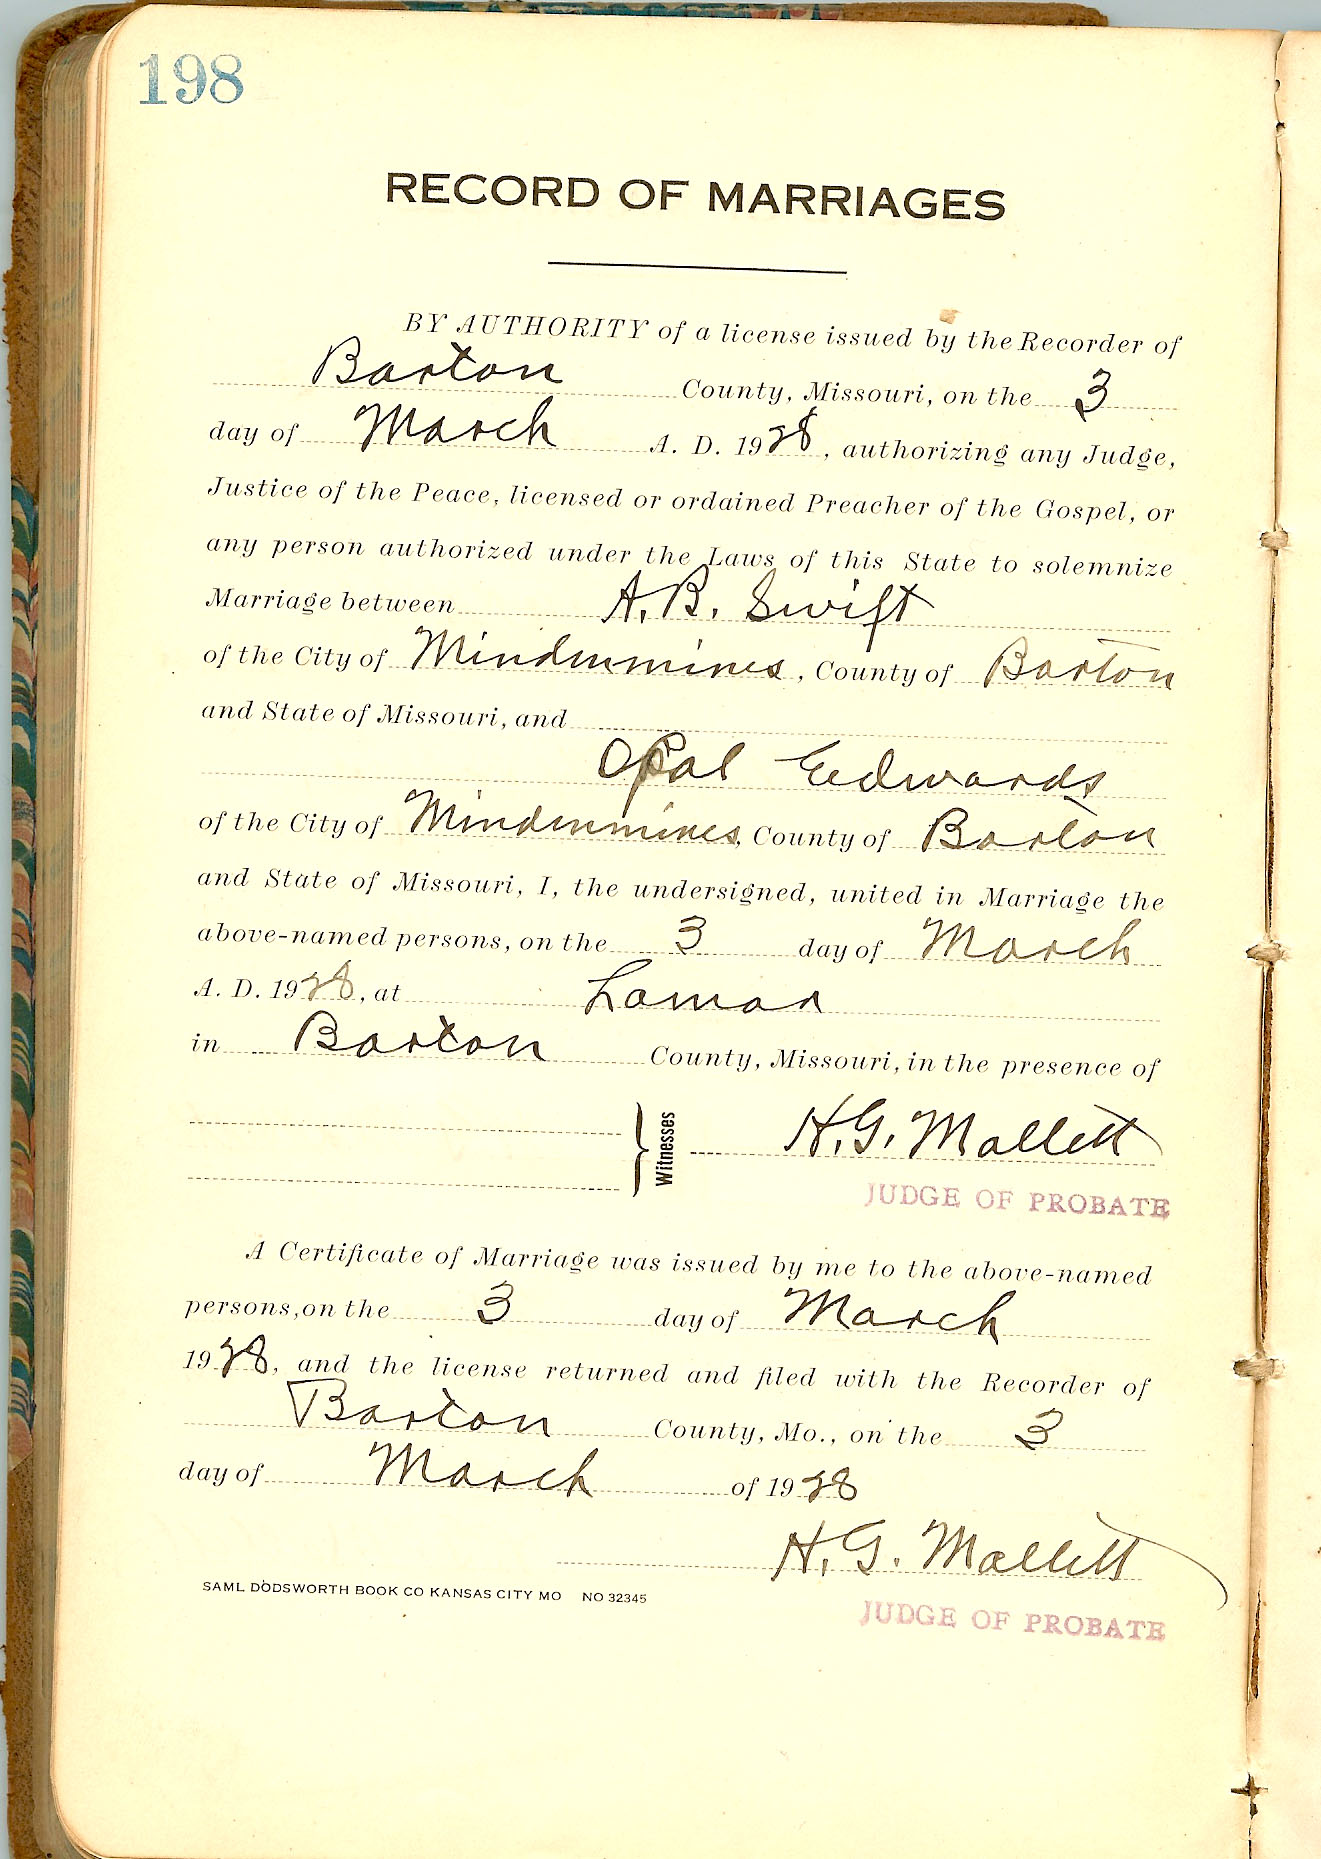 198
RECORD OF MARRIAGES
BY AUTHORITY of a license issued by the Recorder of
Barton County, Missouri, on the 3
day of March A. D. 1928, authorizing any Judge,
Justice of the Peace, licensed or ordained Preacher of the Gospel, or
any person authorized under the Laws of this State to solemnize
Marriage between A. B. Swift
of the City of Mindenmines, County of Barton
and State of Missouri, and
Opal Edwards
of the City of Mindenmines, County of Barton
and State of Missouri, I, the undersigned, united in Marriage the
above-named persons, on the 3 day of March
A. D. 1928, at Lamar
in Barton County, Missouri, in the presence of
Witnesses H. G. Mallett
JUDGE OF PROBATE
A Certificate of Marriage was issued by me to the above-named
persons, on the 3 day of March
1928, and the license returned and filed with the Recorder of
Barton County, Mo., on the 3
day of March of 1928
H. G. Mallett
SAML DODSWORTH BOOK CO KANSAS CITY MO NO 32345
JUDGE OF PROBATE